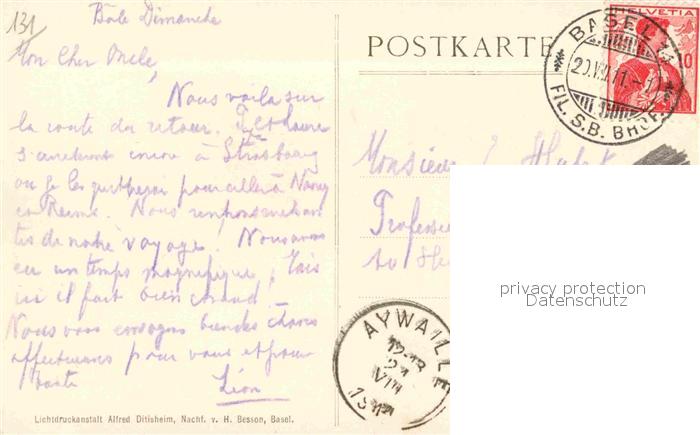 131
Bale Dimanche
Mon Cher Oncle,
Nous voila sur
la route du retour. Et Laure
s'arreteront encore à Strasbourg
ou je les quitterai pour aller à Nancy
et Reims. Nous
de notre voyage. Nous avons
eu un temps magnifique, Mais
ici il fait bien chaud.
Nous vous envoyons bien des choses
affectueuses pour vous et pour
tante
Léon
Lichtdruckanstalt Alfred Ditisheim, Nachf. v. H. Besson, Basel.
POSTKARTE
HELVETIA
10
BASEL 11
20.VIII.11.-1
FIL. S.B. BHOF.
Monsieur
AYWAILLE
12-13
21
VIII
1911
privacy protection
Datenschutz